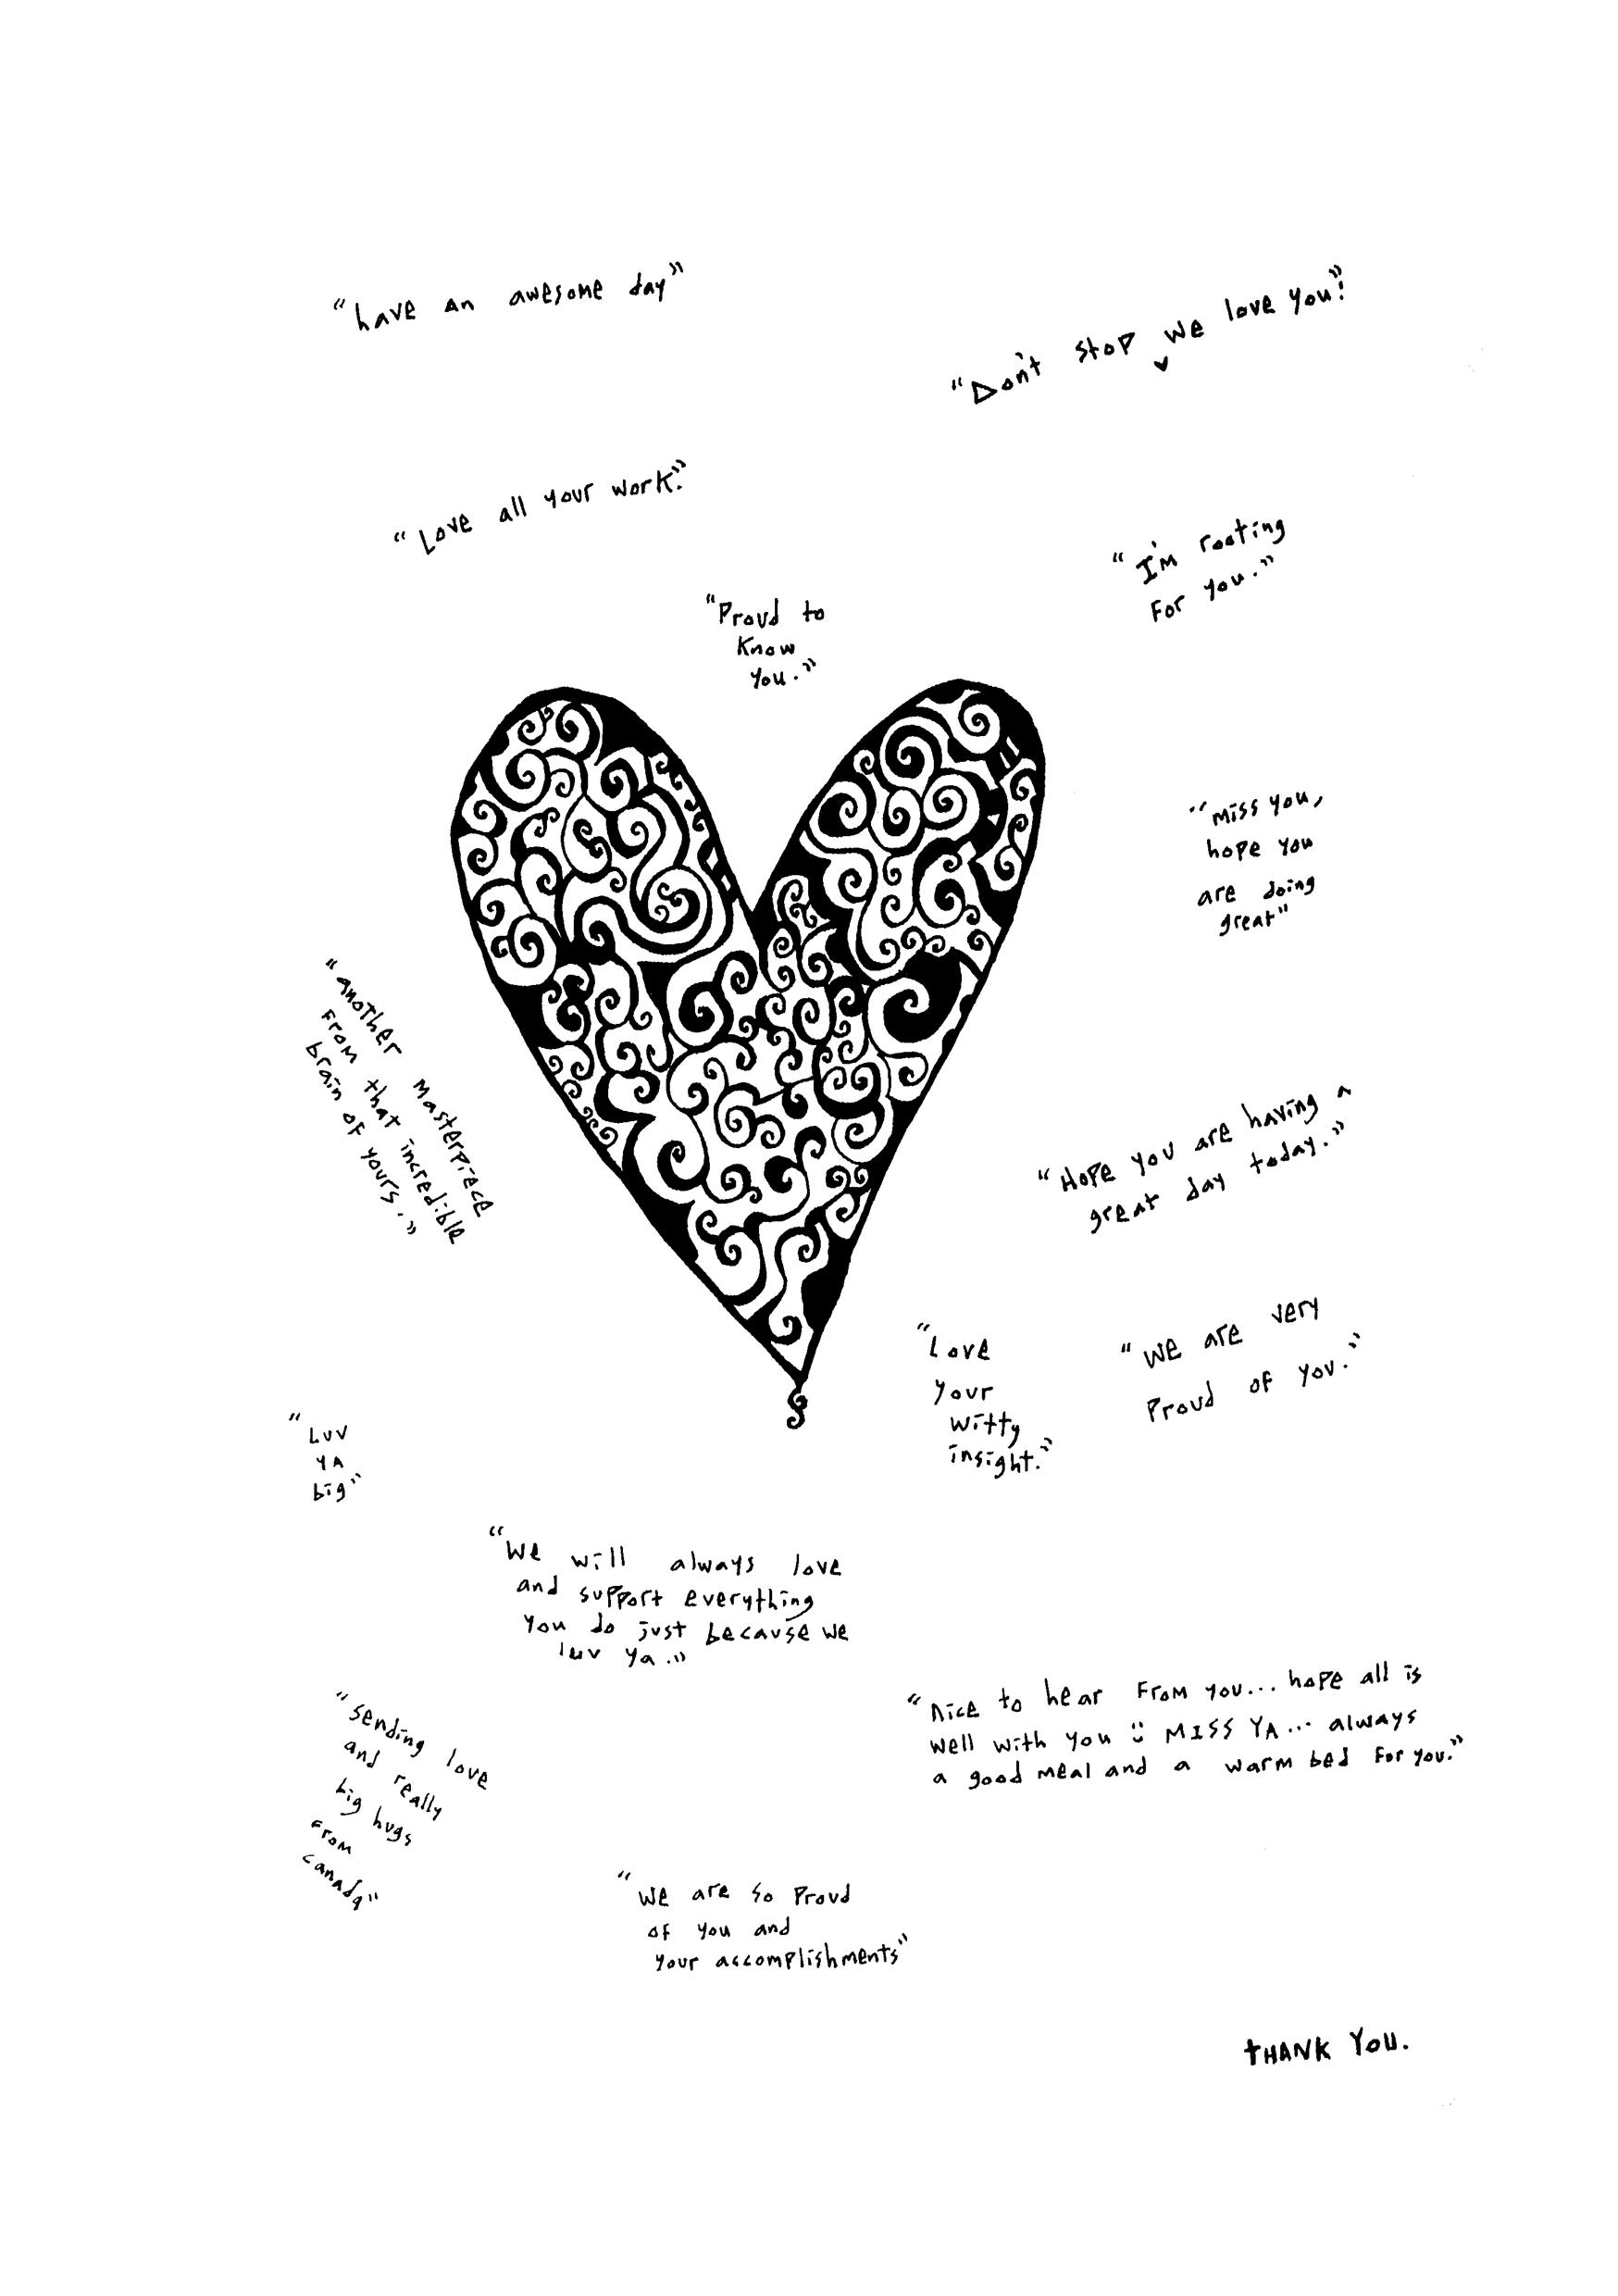 "have an awesome day"
"Don't stop we love you!"
"Love all your work."
"I'm rooting
for you."
"Proud to
know
you."
"miss you,
hope you
are doing
great"
"another masterpiece
from that incredible
brain of yours."
"Hope you are having a
great day today."
"Love
your
witty
insight."
"We are very
proud of you."
"Luv
ya
big"
"We will always love
and support everything
you do just because we
luv ya."
"nice to hear from you... hope all is
well with you :) MISS YA... always
a good meal and a warm bed for you."
"sending love
and really
big hugs
from
canada"
"We are so proud
of you and
your accomplishments"
THANK YOU.